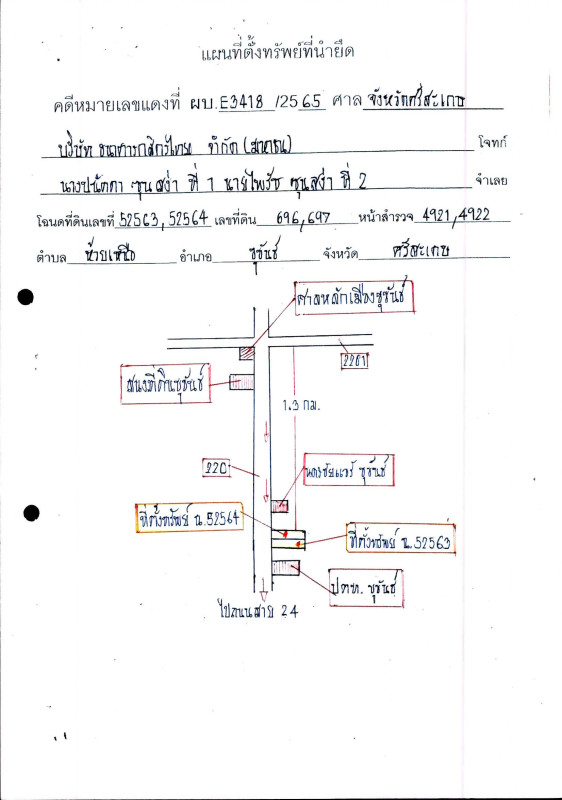 แผนที่ตั้งทรัพย์ที่นำยึด
คดีหมายเลขแดงที่ ผบ.E3418 /2565 ศาล จังหวัดศรีสะเกษ
บริษัท ธนาคารกสิกรไทย จำกัด (มหาชน) โจทก์
ที่ 1 นายไพรัช ขุนสง่า ที่ 2 จำเลย
โฉนดที่ดินเลขที่ 52563, 52564 เลขที่ดิน 696,697 หน้าสำรวจ 4921,4922
ตำบล ห้วยเหนือ อำเภอ ขุขันธ์ จังหวัด ศรีสะเกษ
ศาลหลักเมืองขุขันธ์
2201
สนง.ที่ดินขุขันธ์
1.3 กม.
220
นครชัยแอร์ ขุขันธ์
ที่ตั้งทรัพย์ น.52564
ที่ตั้งทรัพย์ น.52563
ขุขันธ์
ไปถนนสาย 24